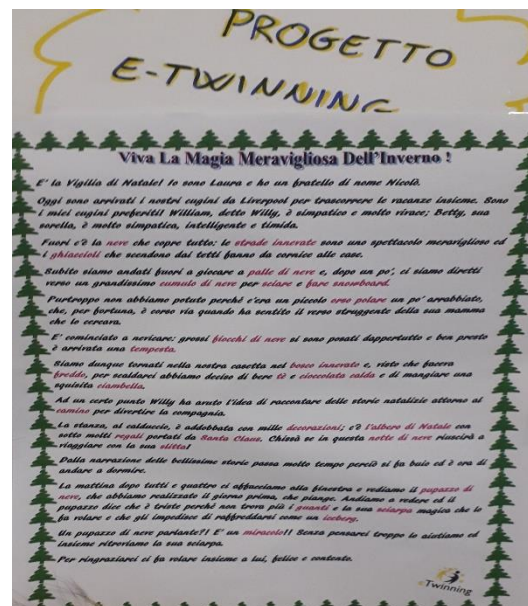 PROGETTO
E-TWINNING
Viva La Magia Meravigliosa Dell'Inverno !
E' la Vigilia di Natale! Io sono Laura e ho un fratello di nome Nicolò.
Oggi sono arrivati i nostri cugini da Liverpool per trascorrere le vacanze insieme. Sono
i miei cugini preferiti! William, detto Willy, è simpatico e molto vivace; Betty, sua
sorella, è molto simpatica, intelligente e timida.
Fuori c'è la neve che copre tutto; le strade innevate sono uno spettacolo meraviglioso ed
i ghiaccioli che scendono dai tetti fanno da cornice alle case.
Subito siamo andati fuori a giocare a palle di neve e, dopo un po', ci siamo diretti
verso un grandissimo cumulo di neve per sciare e fare snowboard.
Purtroppo non abbiamo potuto perché c'era un piccolo orso polare un po' arrabbiato,
che, per fortuna, è corso via quando ha sentito il verso struggente della sua mamma
che lo cercava.
E' cominciato a nevicare: grossi fiocchi di neve si sono posati dappertutto e ben presto
è arrivata una tempesta.
Siamo dunque tornati nella nostra casetta nel bosco innevato e, visto che faceva
freddo, per scaldarci abbiamo deciso di bere tè e cioccolata calda e di mangiare una
squisita ciambella.
Ad un certo punto Willy ha avuto l'idea di raccontare delle storie natalizie attorno al
camino per divertire la compagnia.
La stanza, al calduccio, è addobbata con mille decorazioni; c'è l'albero di Natale con
sotto molti regali portati da Santa Claus. Chissà se in questa notte di neve riuscirà a
viaggiare con la sua slitta!
Dalla narrazione delle bellissime storie passa molto tempo perciò si fa buio ed è ora di
andare a dormire.
La mattina dopo tutti e quattro ci affacciamo alla finestra e vediamo il pupazzo di
neve, che abbiamo realizzato il giorno prima, che piange. Andiamo a vedere ed il
pupazzo dice che è triste perché non trova più i guanti e la sua sciarpa magica che lo
fa volare e che gli impedisce di raffreddarsi come un iceberg.
Un pupazzo di neve parlante?! E' un miracolo!! Senza pensarci troppo lo aiutiamo ed
insieme ritroviamo la sua sciarpa.
Per ringraziarci ci fa volare insieme a lui, felice e contento.
eTwinning